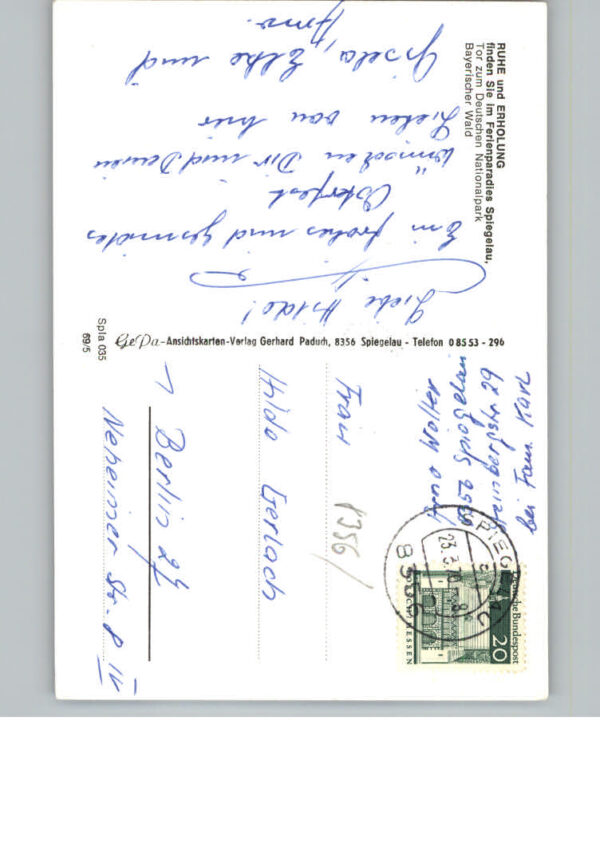 RUHE und ERHOLUNG
finden Sie im Ferienparadies Spiegelau,
Tor zum Deutschen Nationalpark
Bayerischer Wald
Liebe Hilde!
Ein frohes und gesundes
Osterfest
wünschen Dir und Deinen
Lieben von hier
Gisela, Elke und
Arno.
Spla 035
69/5
GePa-Ansichtskarten-Verlag Gerhard Paduch, 8356 Spiegelau - Telefon 08553-296
Arno Wolter
8356 Spiegelau
Steinbergstr. 29
bei Fam. Karl
SPIEGELAU
23.3.70-8
8356
Deutsche Bundespost
20
LORSCH/HESSEN
Frau
8356/
Hilde Gerlach
1 Berlin 27
Neheimer Str. 8 IV